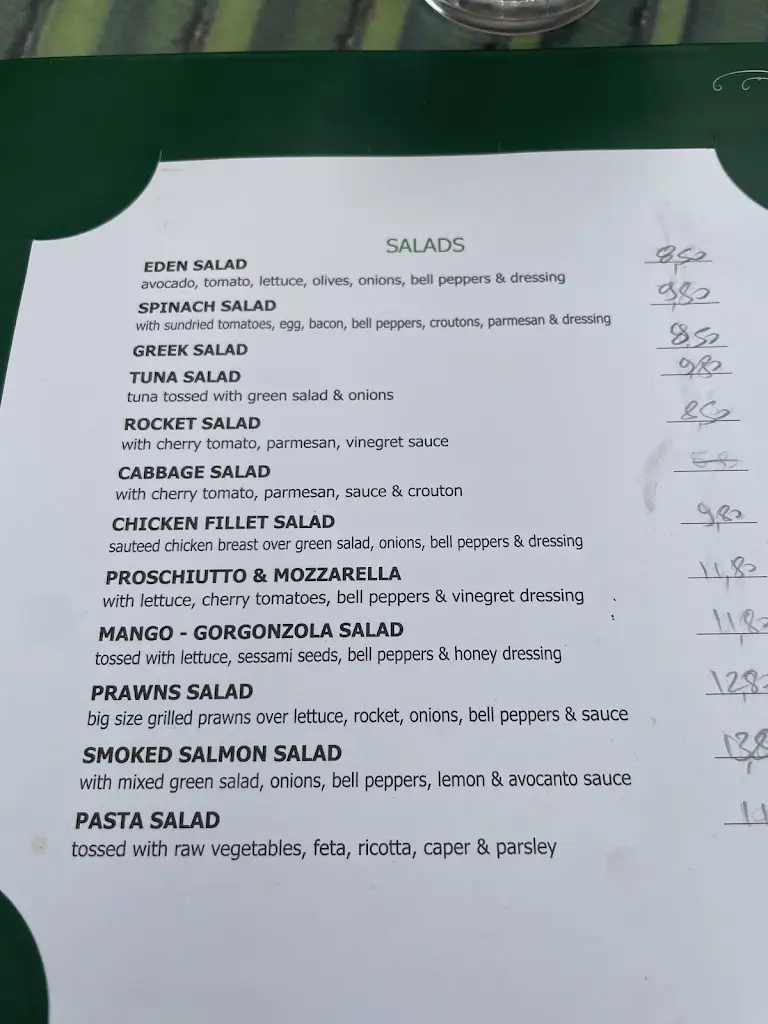 SALADS
EDEN SALAD 8,50
avocado, tomato, lettuce, olives, onions, bell peppers & dressing
SPINACH SALAD 9,80
with sundried tomatoes, egg, bacon, bell peppers, croutons, parmesan & dressing
GREEK SALAD 8,50
TUNA SALAD 9,80
tuna tossed with green salad & onions
ROCKET SALAD 8,50
with cherry tomato, parmesan, vinegret sauce
CABBAGE SALAD
with cherry tomato, parmesan, sauce & crouton
CHICKEN FILLET SALAD 9,80
sauteed chicken breast over green salad, onions, bell peppers & dressing
PROSCHIUTTO & MOZZARELLA 11,80
with lettuce, cherry tomatoes, bell peppers & vinegret dressing
MANGO - GORGONZOLA SALAD 11,80
tossed with lettuce, sessami seeds, bell peppers & honey dressing
PRAWNS SALAD 12,80
big size grilled prawns over lettuce, rocket, onions, bell peppers & sauce
SMOKED SALMON SALAD 13,8
with mixed green salad, onions, bell peppers, lemon & avocanto sauce
PASTA SALAD
tossed with raw vegetables, feta, ricotta, caper & parsley